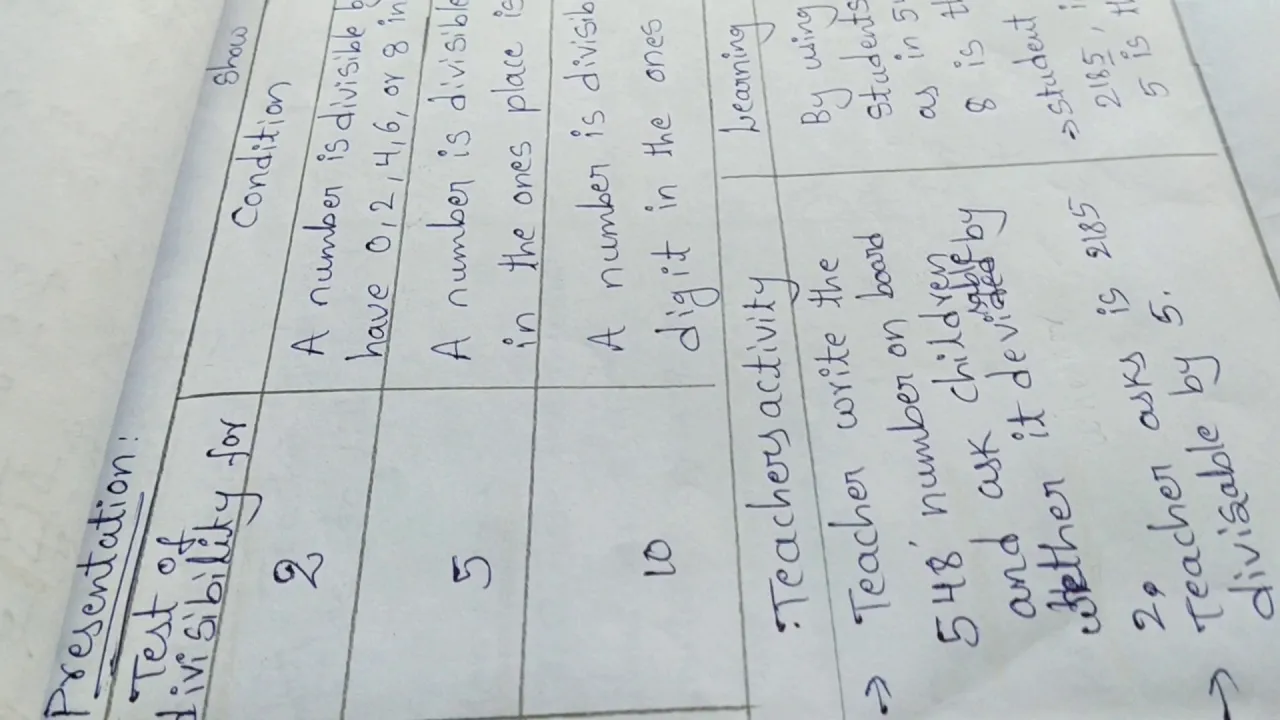 Presentation:
Test of
divisibility for
Condition
show
2
A number is divisible
have 0, 2, 4, 6, or 8 in
5
A number is divisible
in the ones place is
10
A number is divisib
digit in the ones
: Teachers activity
Learning
→ Teacher write the
548 number on board
and ask children
wether it devisable by
2.
→ Teacher asks is 2185
divisable by 5.
By using
students
as in 5
8 is th
→ student
2185, i
5 is th